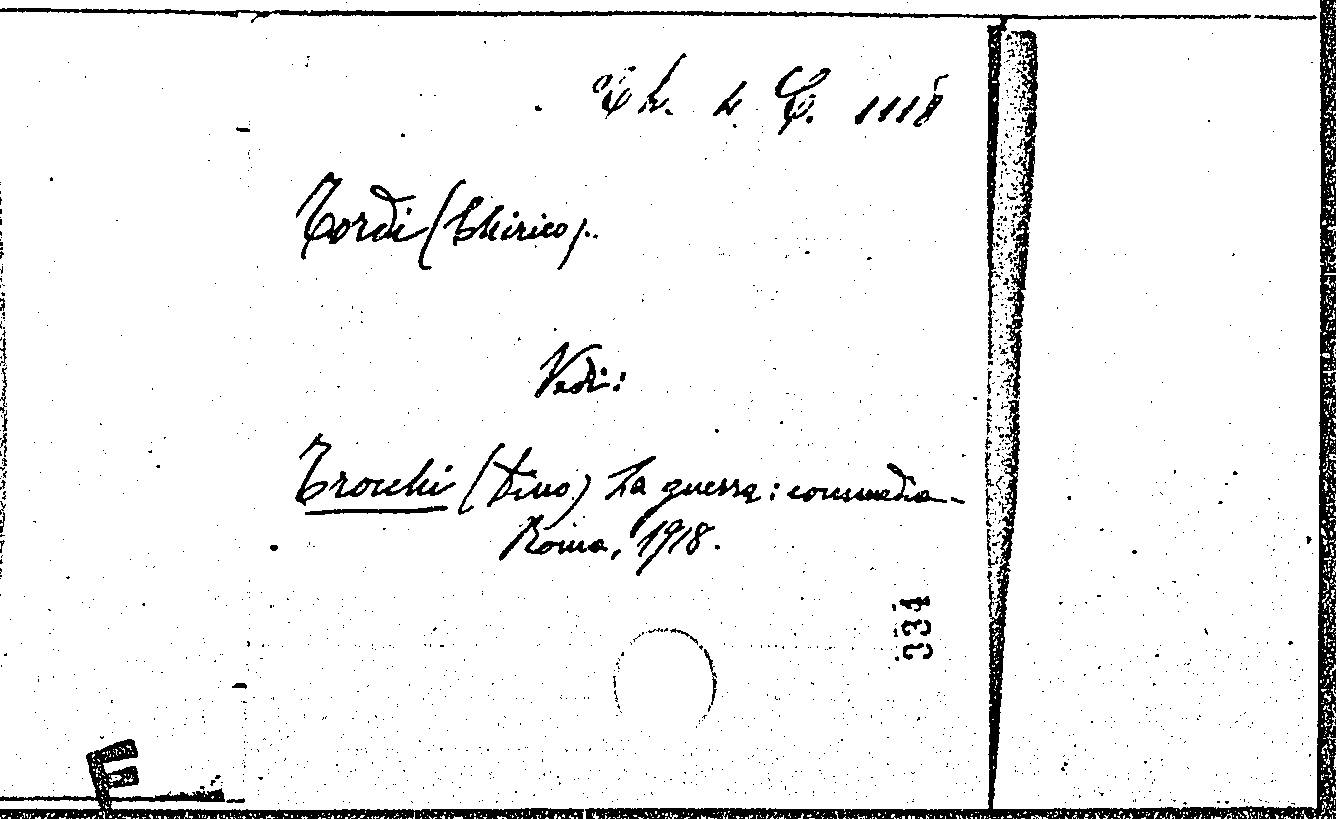 Th. 4. C. 1118
Tordi (Chirico).
Vedi:
Trocchi (Dino) La guerra: commedia -
Roma, 1918.
334
F